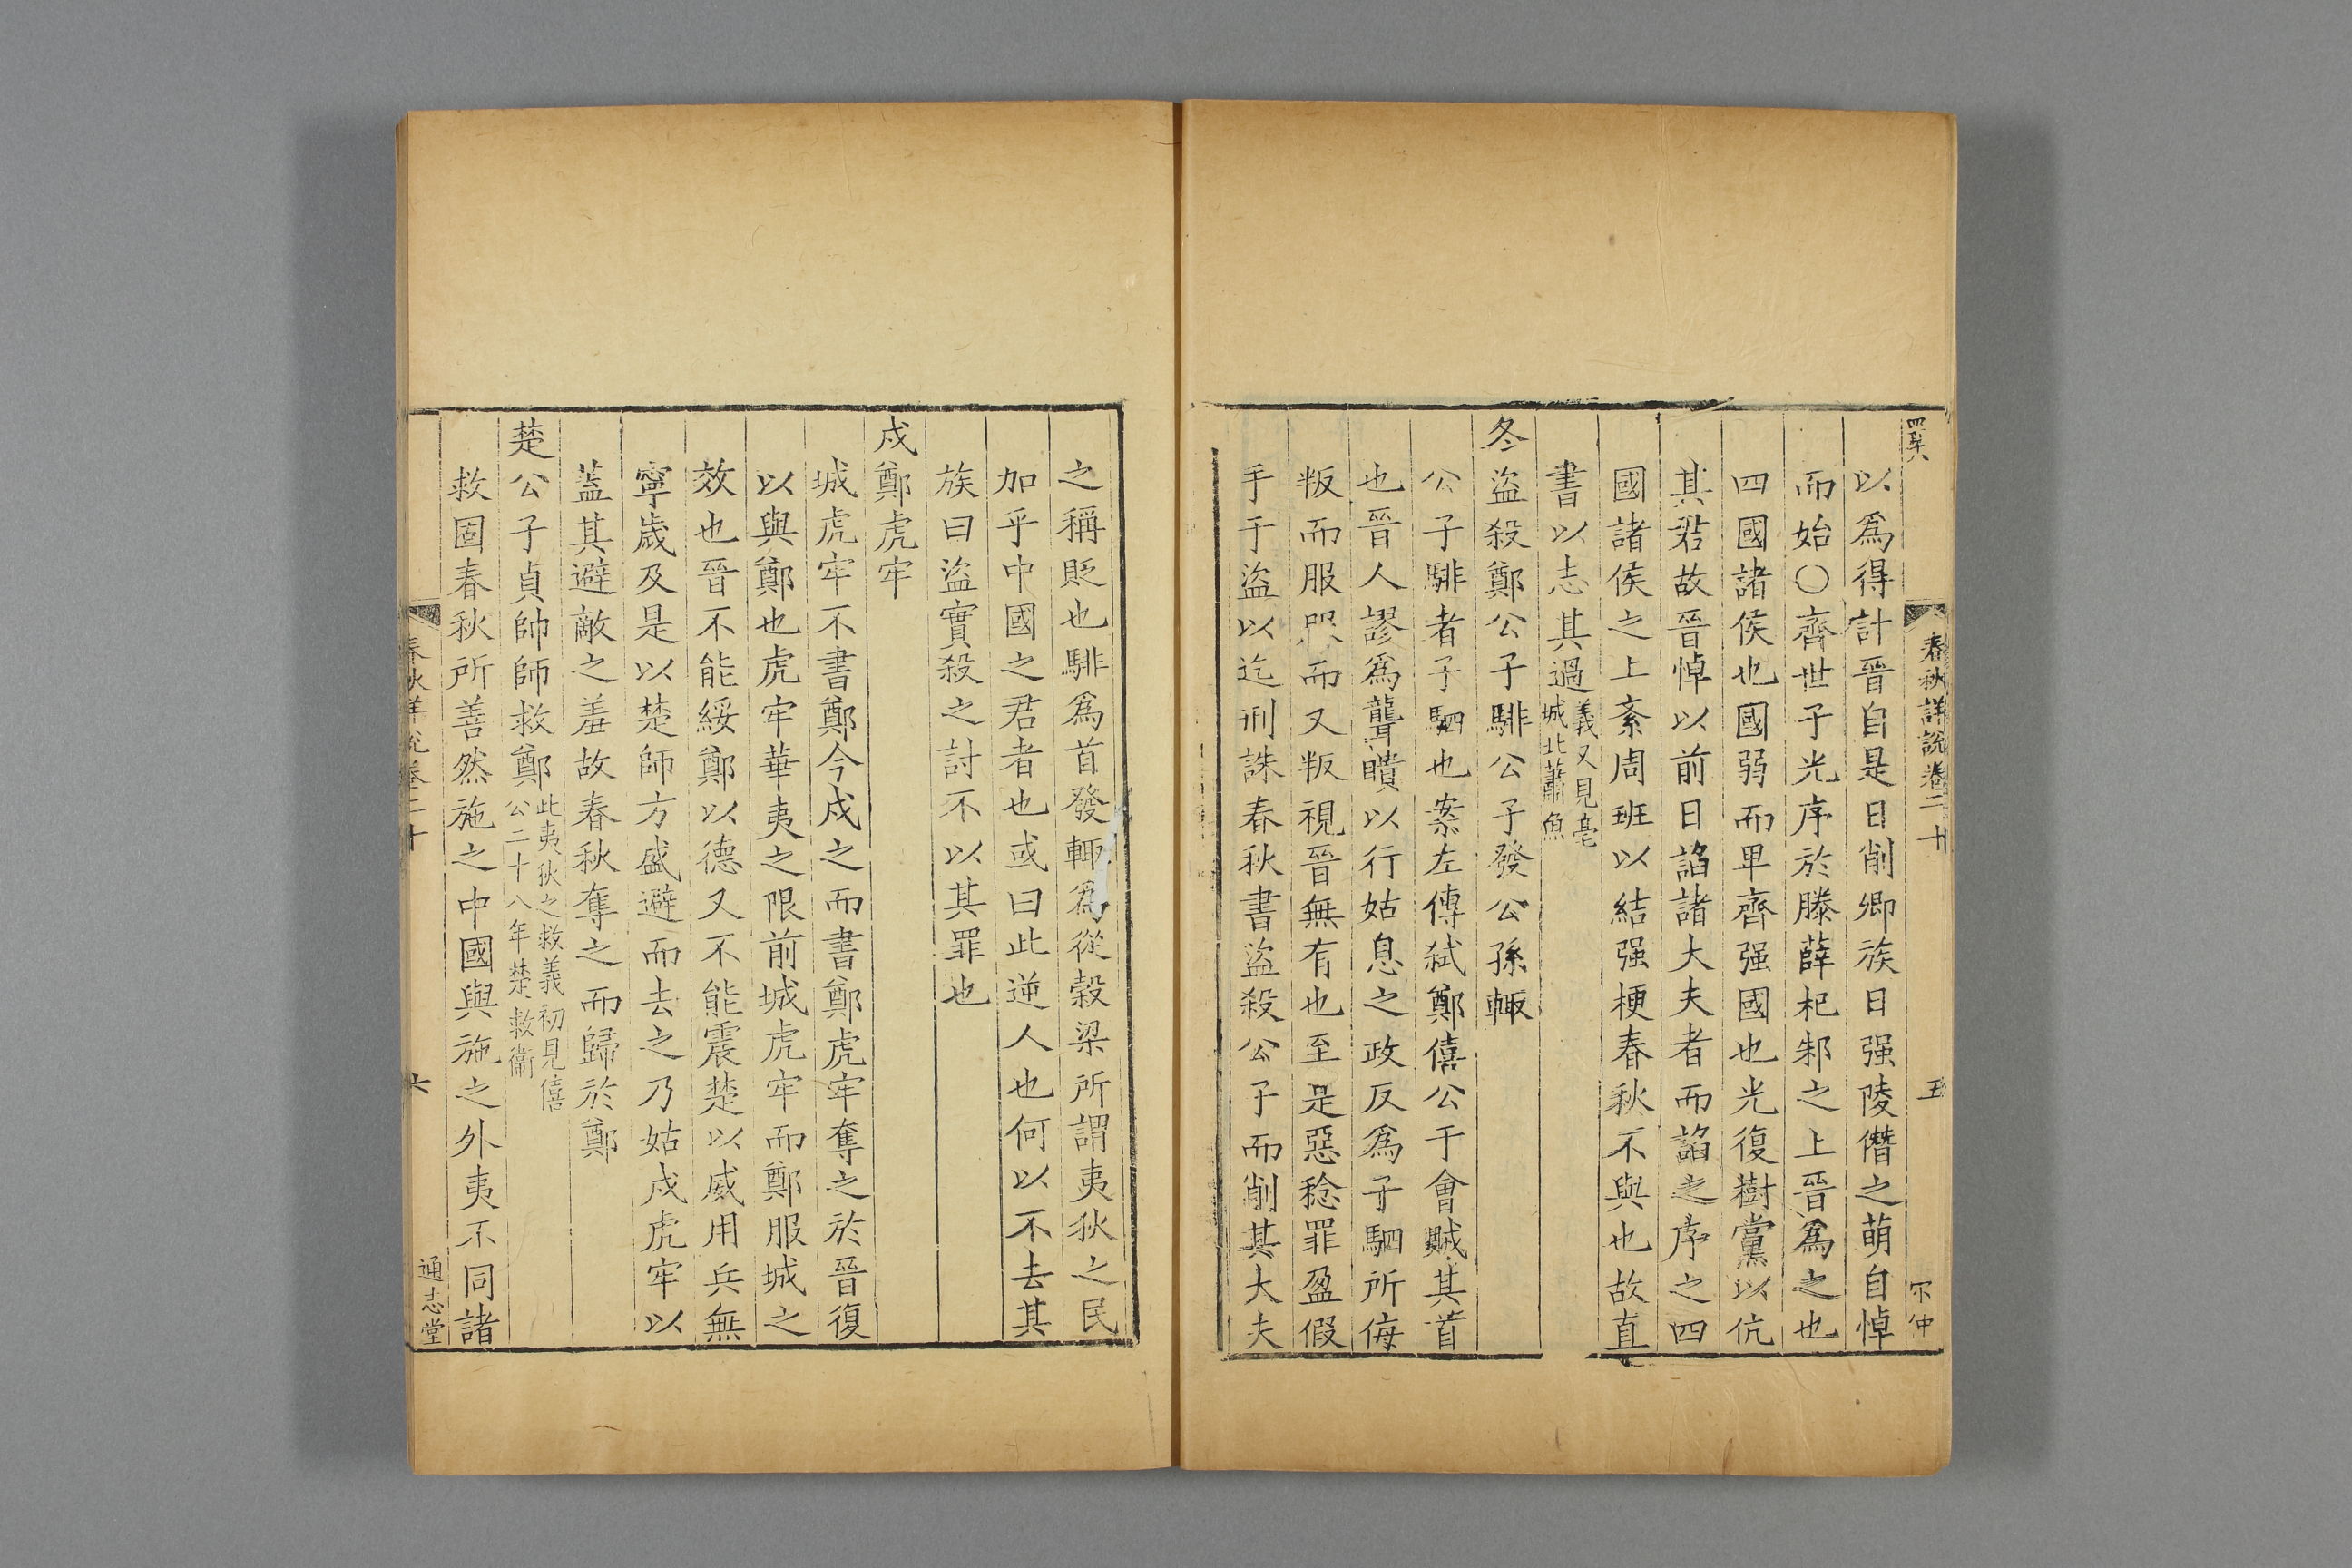 春秋詳說卷二十
五
以爲得計晉自是日削卿族日强陵僭之萌自悼
而始〇齊世子光序於滕薛杞邾之上晉爲之也
四國諸侯也國弱而卑齊强國也光復樹黨以伉
其君故晉悼以前日諂諸大夫者而諂之序之四
國諸侯之上紊周班以結强梗春秋不與也故直
書以志其過義又見亳城北蕭魚
冬盜殺鄭公子騑公子發公孫輒
公子騑者子駟也案左傳弑鄭僖公于會賊其首
也晉人謬爲聾瞶以行姑息之政反爲子駟所侮
叛而服服而又叛視晉無有也至是惡稔罪盈假
手于盜以迄刑誅春秋書盜殺公子而削其大夫
之稱貶也騑爲首發輒爲從穀梁所謂夷狄之民
加乎中國之君者也或曰此逆人也何以不去其
族曰盜實殺之討不以其罪也
戍鄭虎牢
城虎牢不書鄭今戍之而書鄭虎牢奪之於晉復
以與鄭也虎牢華夷之限前城虎牢而鄭服城之
效也晉不能綏鄭以德又不能震楚以威用兵無
寧歲及是以楚師方盛避而去之乃姑戍虎牢以
蓋其避敵之羞故春秋奪之而歸於鄭
楚公子貞帥師救鄭此夷狄之救義初見僖公二十八年楚救衞
救固春秋所善然施之中國與施之外夷不同諸
春秋詳說卷二十
六
通志堂